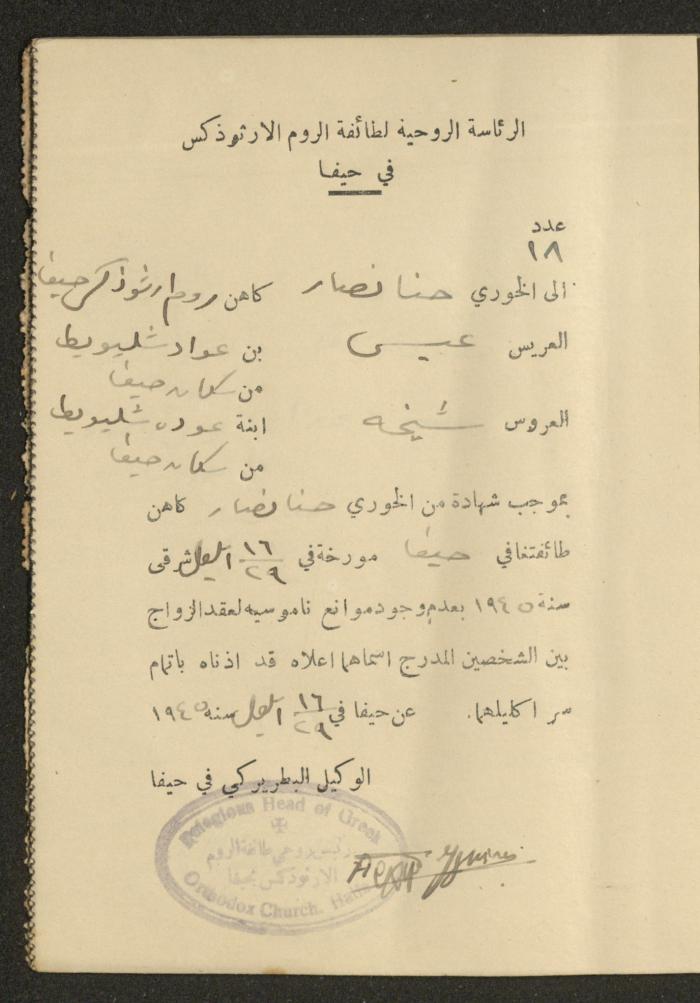 الرئاسة الروحية لطائفة الروم الارثوذكس
في حيفا
عدد
١٨
الى الخوري حنا نصار كاهن روم ارثوذكس حيفا
العريس عيسى بن عواد شليويط
من سكان حيفا
العروس شيخه ابنة عوده شليويط
من سكان حيفا
بموجب شهادة من الخوري حنا نصار كاهن
طائفتنا في حيفا مورخة في ١٦/٢٩ ايلول شرقي
سنة ١٩٤٥ بعدم وجود موانع ناموسيه لعقد الزواج
بين الشخصين المدرج اسماهما اعلاه قد اذناه باتمام
سر اكليلهما. عن حيفا في ١٦/٢٩ ايلول سنه ١٩٤٥
الوكيل البطريركي في حيفا
Religious Head of Greek
رئيس روحي طائفة الروم
الارثوذكس بحيفا
Orthodox Church. Haifa